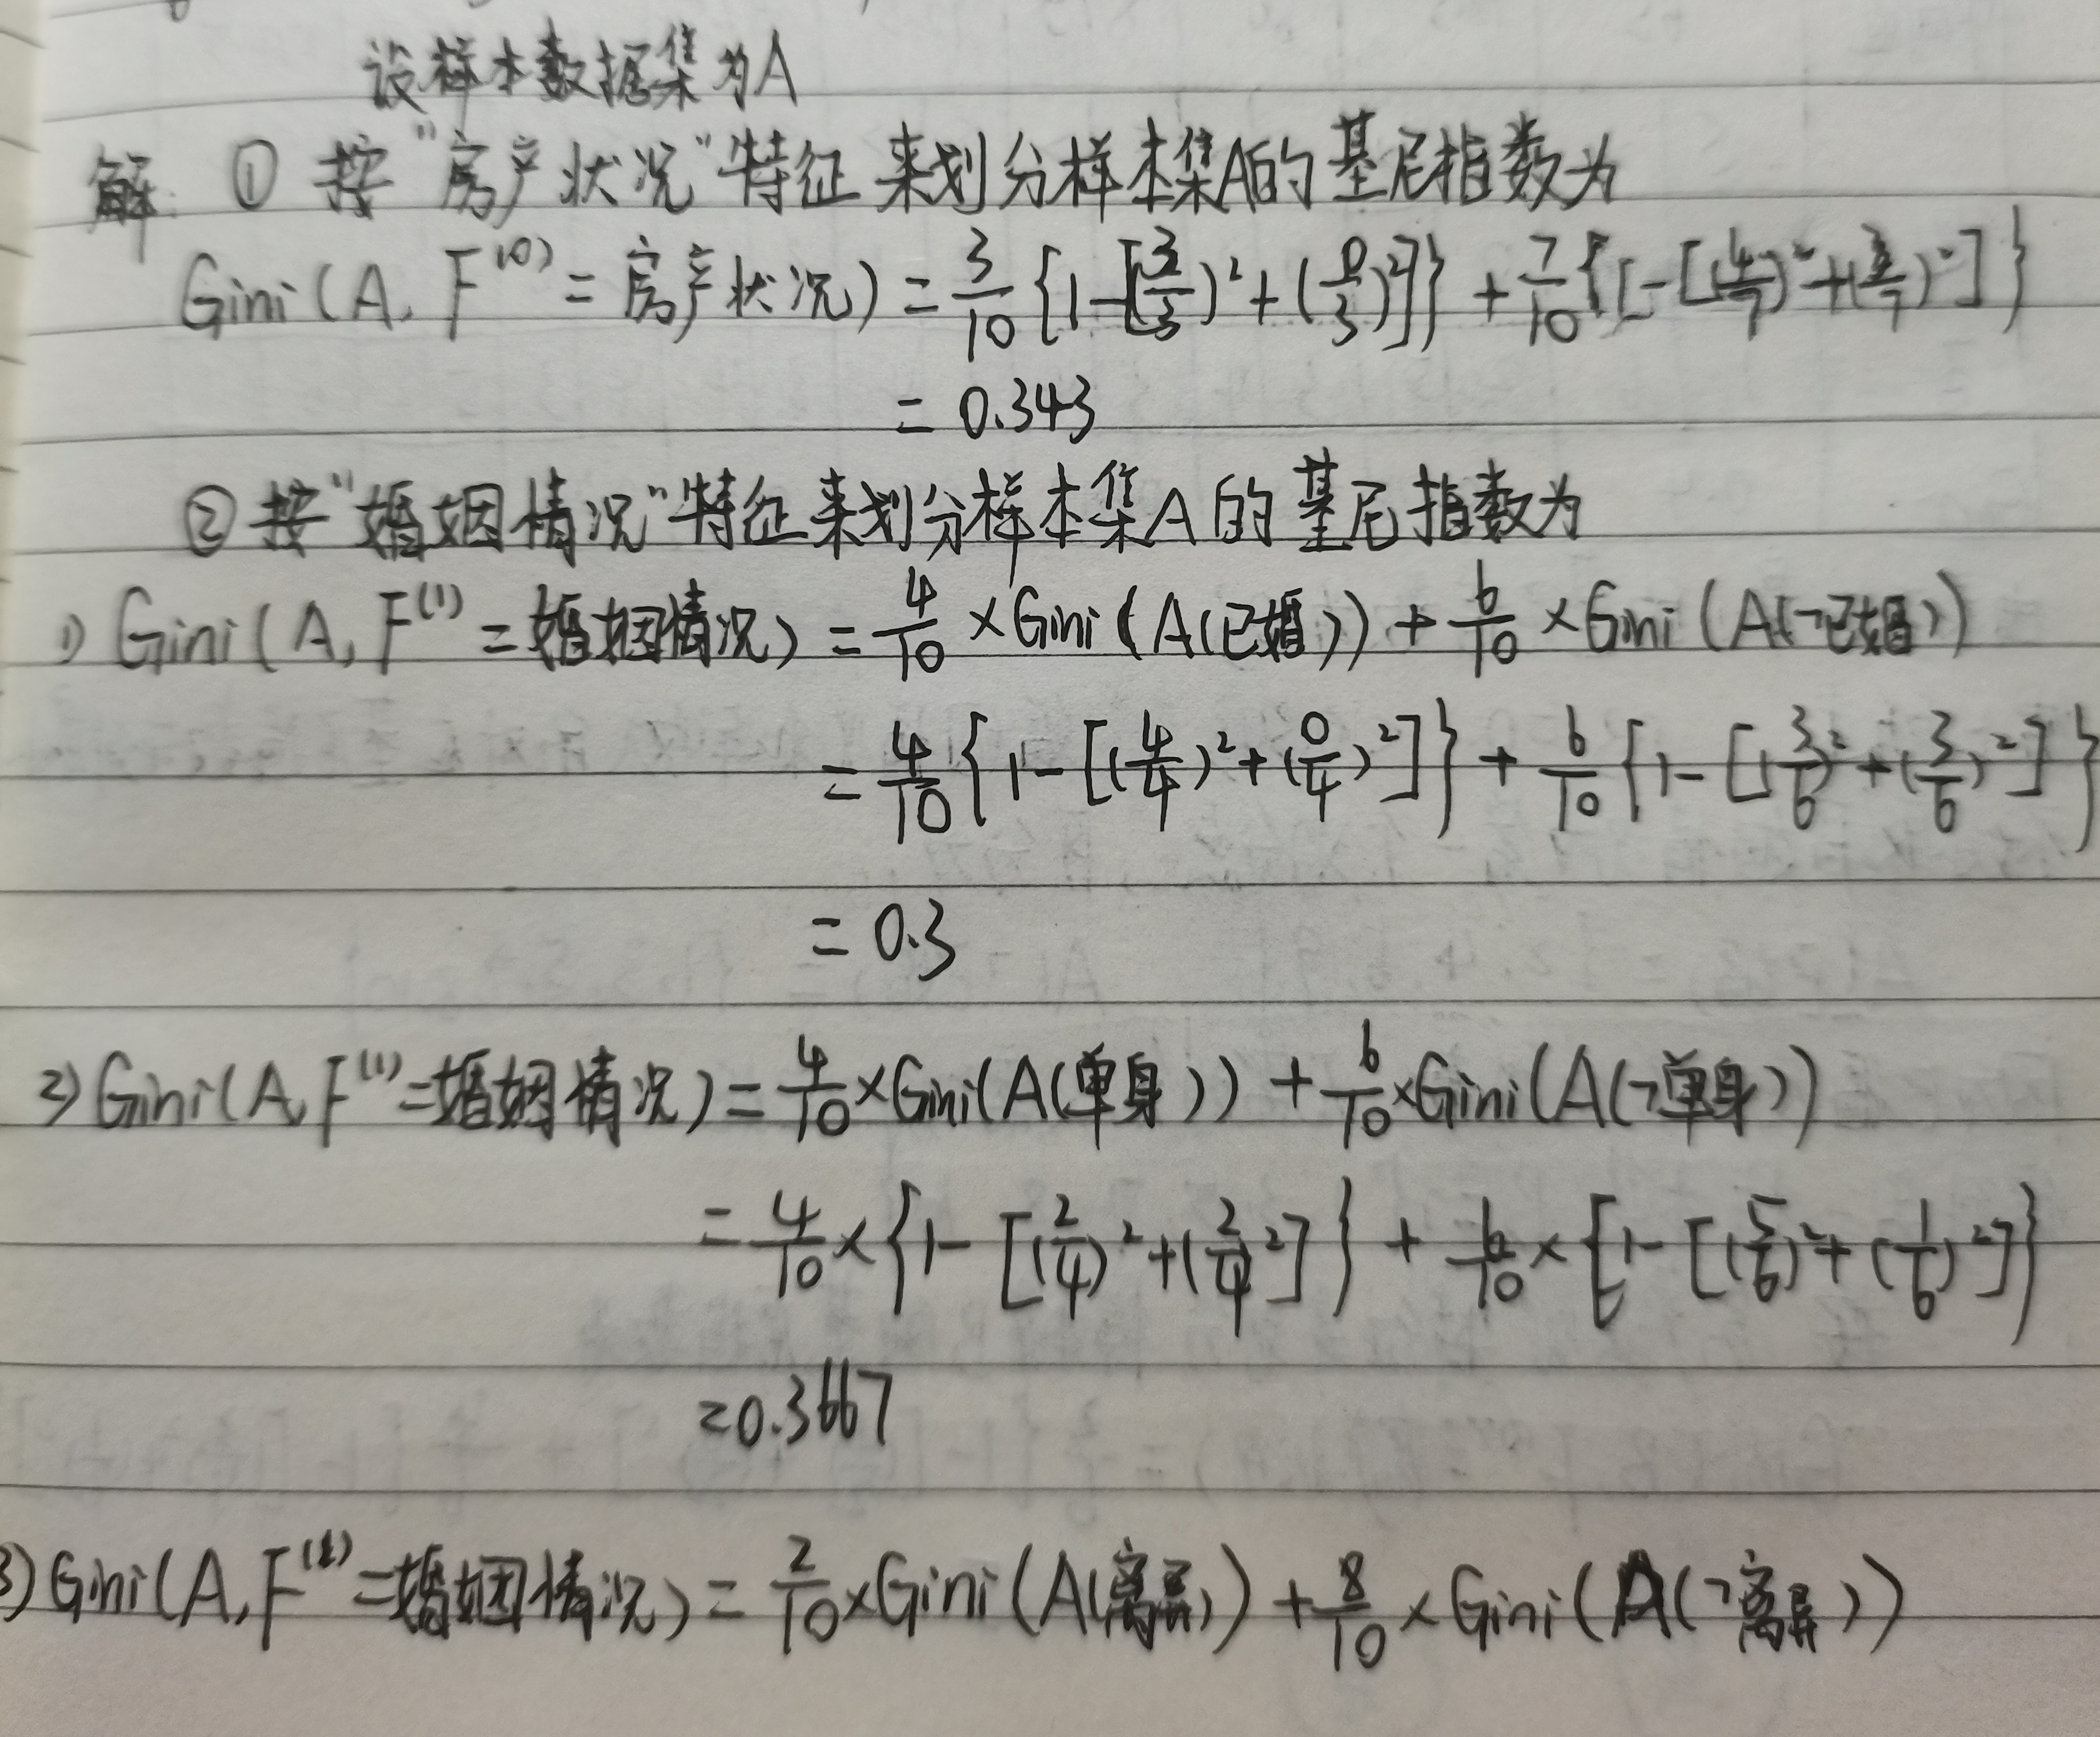 设样本数据集为A
解: ① 按"房产状况"特征来划分样本集A的基尼指数为
Gini(A, F⁽⁰⁾=房产状况) = 3/10 {1-[(3/3)²+(0/3)²]} + 7/10 {1-[(4/7)²+(3/7)²]}
= 0.343
② 按"婚姻情况"特征来划分样本集A的基尼指数为
1) Gini(A, F⁽¹⁾=婚姻情况) = 4/10 × Gini(A(已婚)) + 6/10 × Gini(A(¬已婚))
= 4/10 {1-[(4/4)²+(0/4)²]} + 6/10 {1-[(3/6)²+(3/6)²]}
= 0.3
2) Gini(A, F⁽¹⁾=婚姻情况) = 4/10 × Gini(A(单身)) + 6/10 × Gini(A(¬单身))
= 4/10 × {1-[(2/4)²+(2/4)²]} + 6/10 × {1-[(5/6)²+(1/6)²]}
= 0.3667
3) Gini(A, F⁽¹⁾=婚姻情况) = 2/10 × Gini(A(离异)) + 8/10 × Gini(A(¬离异))